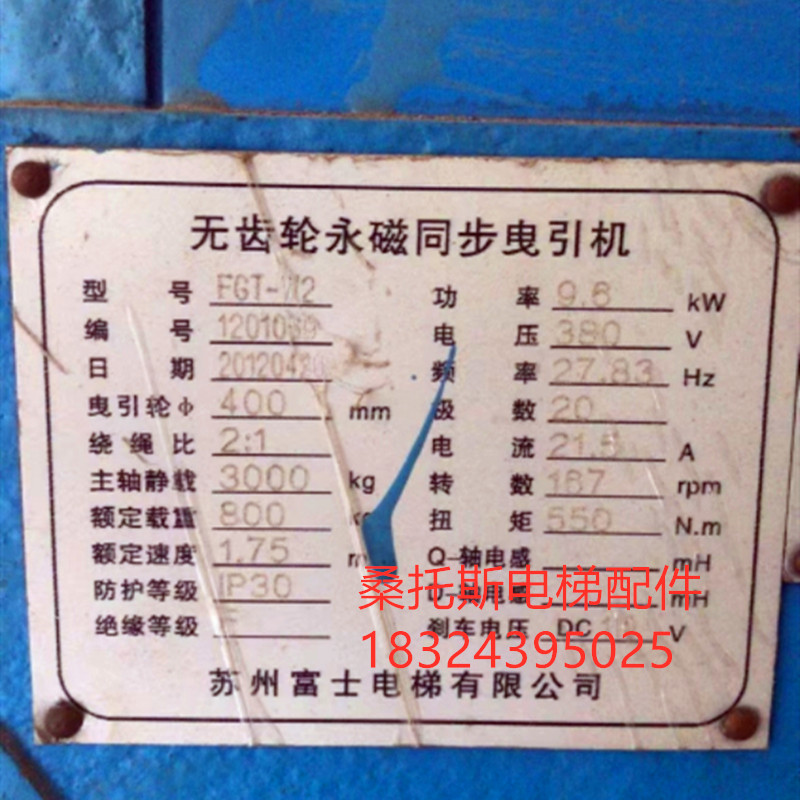 无齿轮永磁同步曳引机
型 号 功 率 9.6 kW
编 号 电 压 380 V
日 期 频 率 27.83 Hz
曳引轮φ 400 mm 极 数 20
绕 绳 比 2:1 电 流 A
主轴静载 3000 kg 转 数 167 rpm
额定载重 800 扭 矩 550 N.m
额定速度 1.75 Q-轴电感 mH
防护等级 IP30 轴电感 mH
绝缘等级 F 刹车电压 DC V
苏州富士电梯有限公司
桑托斯电梯配件
18324395025